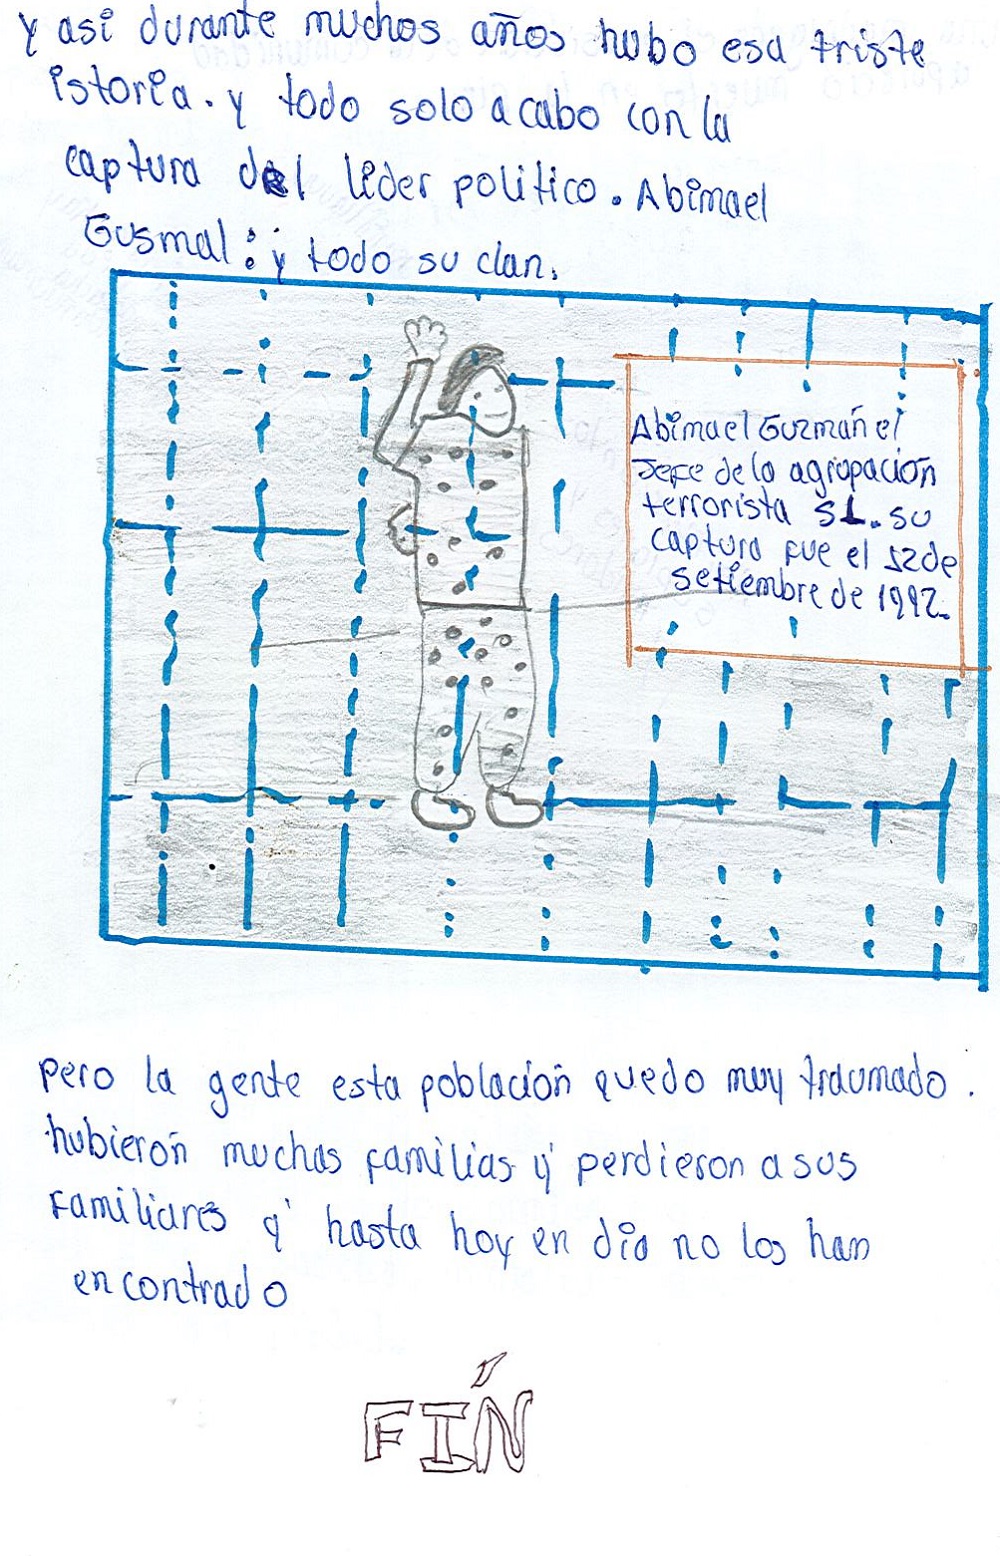 y asi durante muchos años hubo esa triste
istoria. y todo solo acabo con la
captura del lider politico. Abimael
Gusmal: y todo su clan.
Abimael Guzmán el
Jefe de la agropación
terrorista SL. su
captura fue el 12 de
setiembre de 1992.
pero la gente esta población quedo muy traumado.
hubierón muchas familias y perdieron a sus
familiares q' hasta hoy en dia no los han
encontrado
FÍN